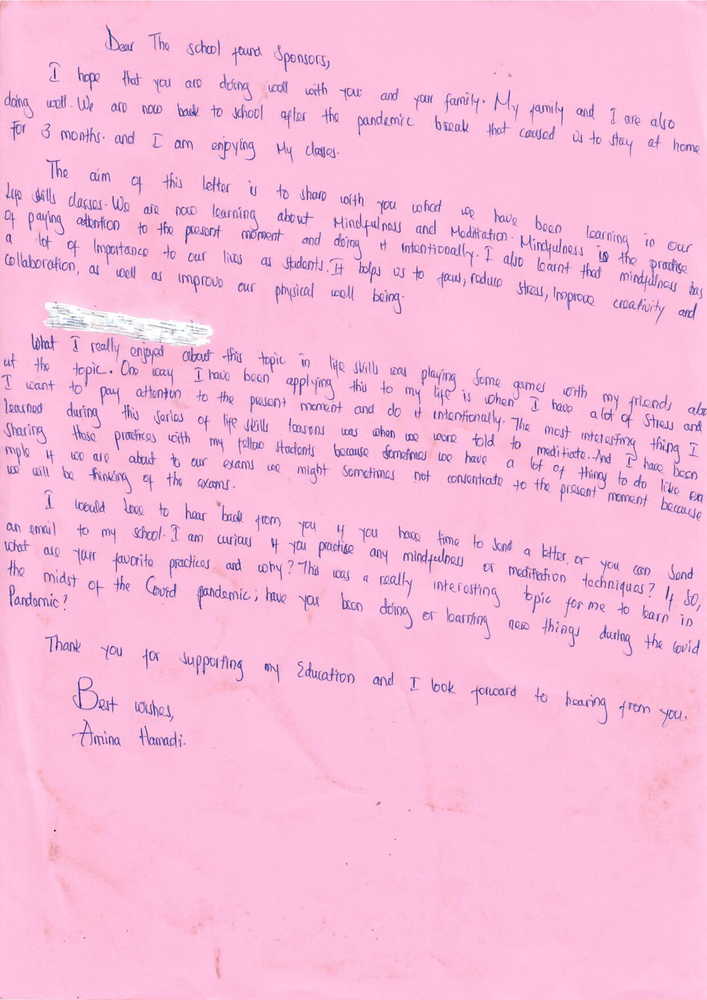 Dear The school found Sponsors,
I hope that you are doing well with you and your family. My family and I are also
doing well. We are now back to school after the pandemic break that caused us to stay at home
for 3 months. and I am enjoying My classes.
The aim of this letter is to share with you what we have been learning in our
Life skills classes. We are now learning about Mindfulness and Meditation. Mindfulness is the practise
of paying attention to the present moment and doing it intentionally. I also learnt that mindfulness has
a lot of Importance to our lives as students. It helps us to focus, reduce stress, Improve creativity and
Collaboration, as well as improve our physical well being.
What I really enjoyed about this topic in life skills was playing some games with my friends abo
ut the topic. One way I have been applying this to my life is when I have a lot of Stress and
I want to pay attention to the present moment and do it intentionally. The most interesting thing I
learned during this series of life skills lessons was when we were told to meditiate. And I have been
Sharing these practices with my fellow students because sometimes we have a lot of things to do like exa
mple if we are about to our exams we might sometimes not concentrate to the present moment because
we will be thinking of the exams.
I would love to hear back from you if you have time to send a letter, or you can send
an email to my school. I am curious if you practise any mindfulness or meditation techniques? If so,
what are your favorite practices and why? This was a really interesting topic for me to learn in
the midst of the Covid pandemic; have you been doing or learning new things during the covid
Pandemic?
Thank you for supporting my Education and I look forward to hearing from you.
Best wishes,
Amina Hamadi.